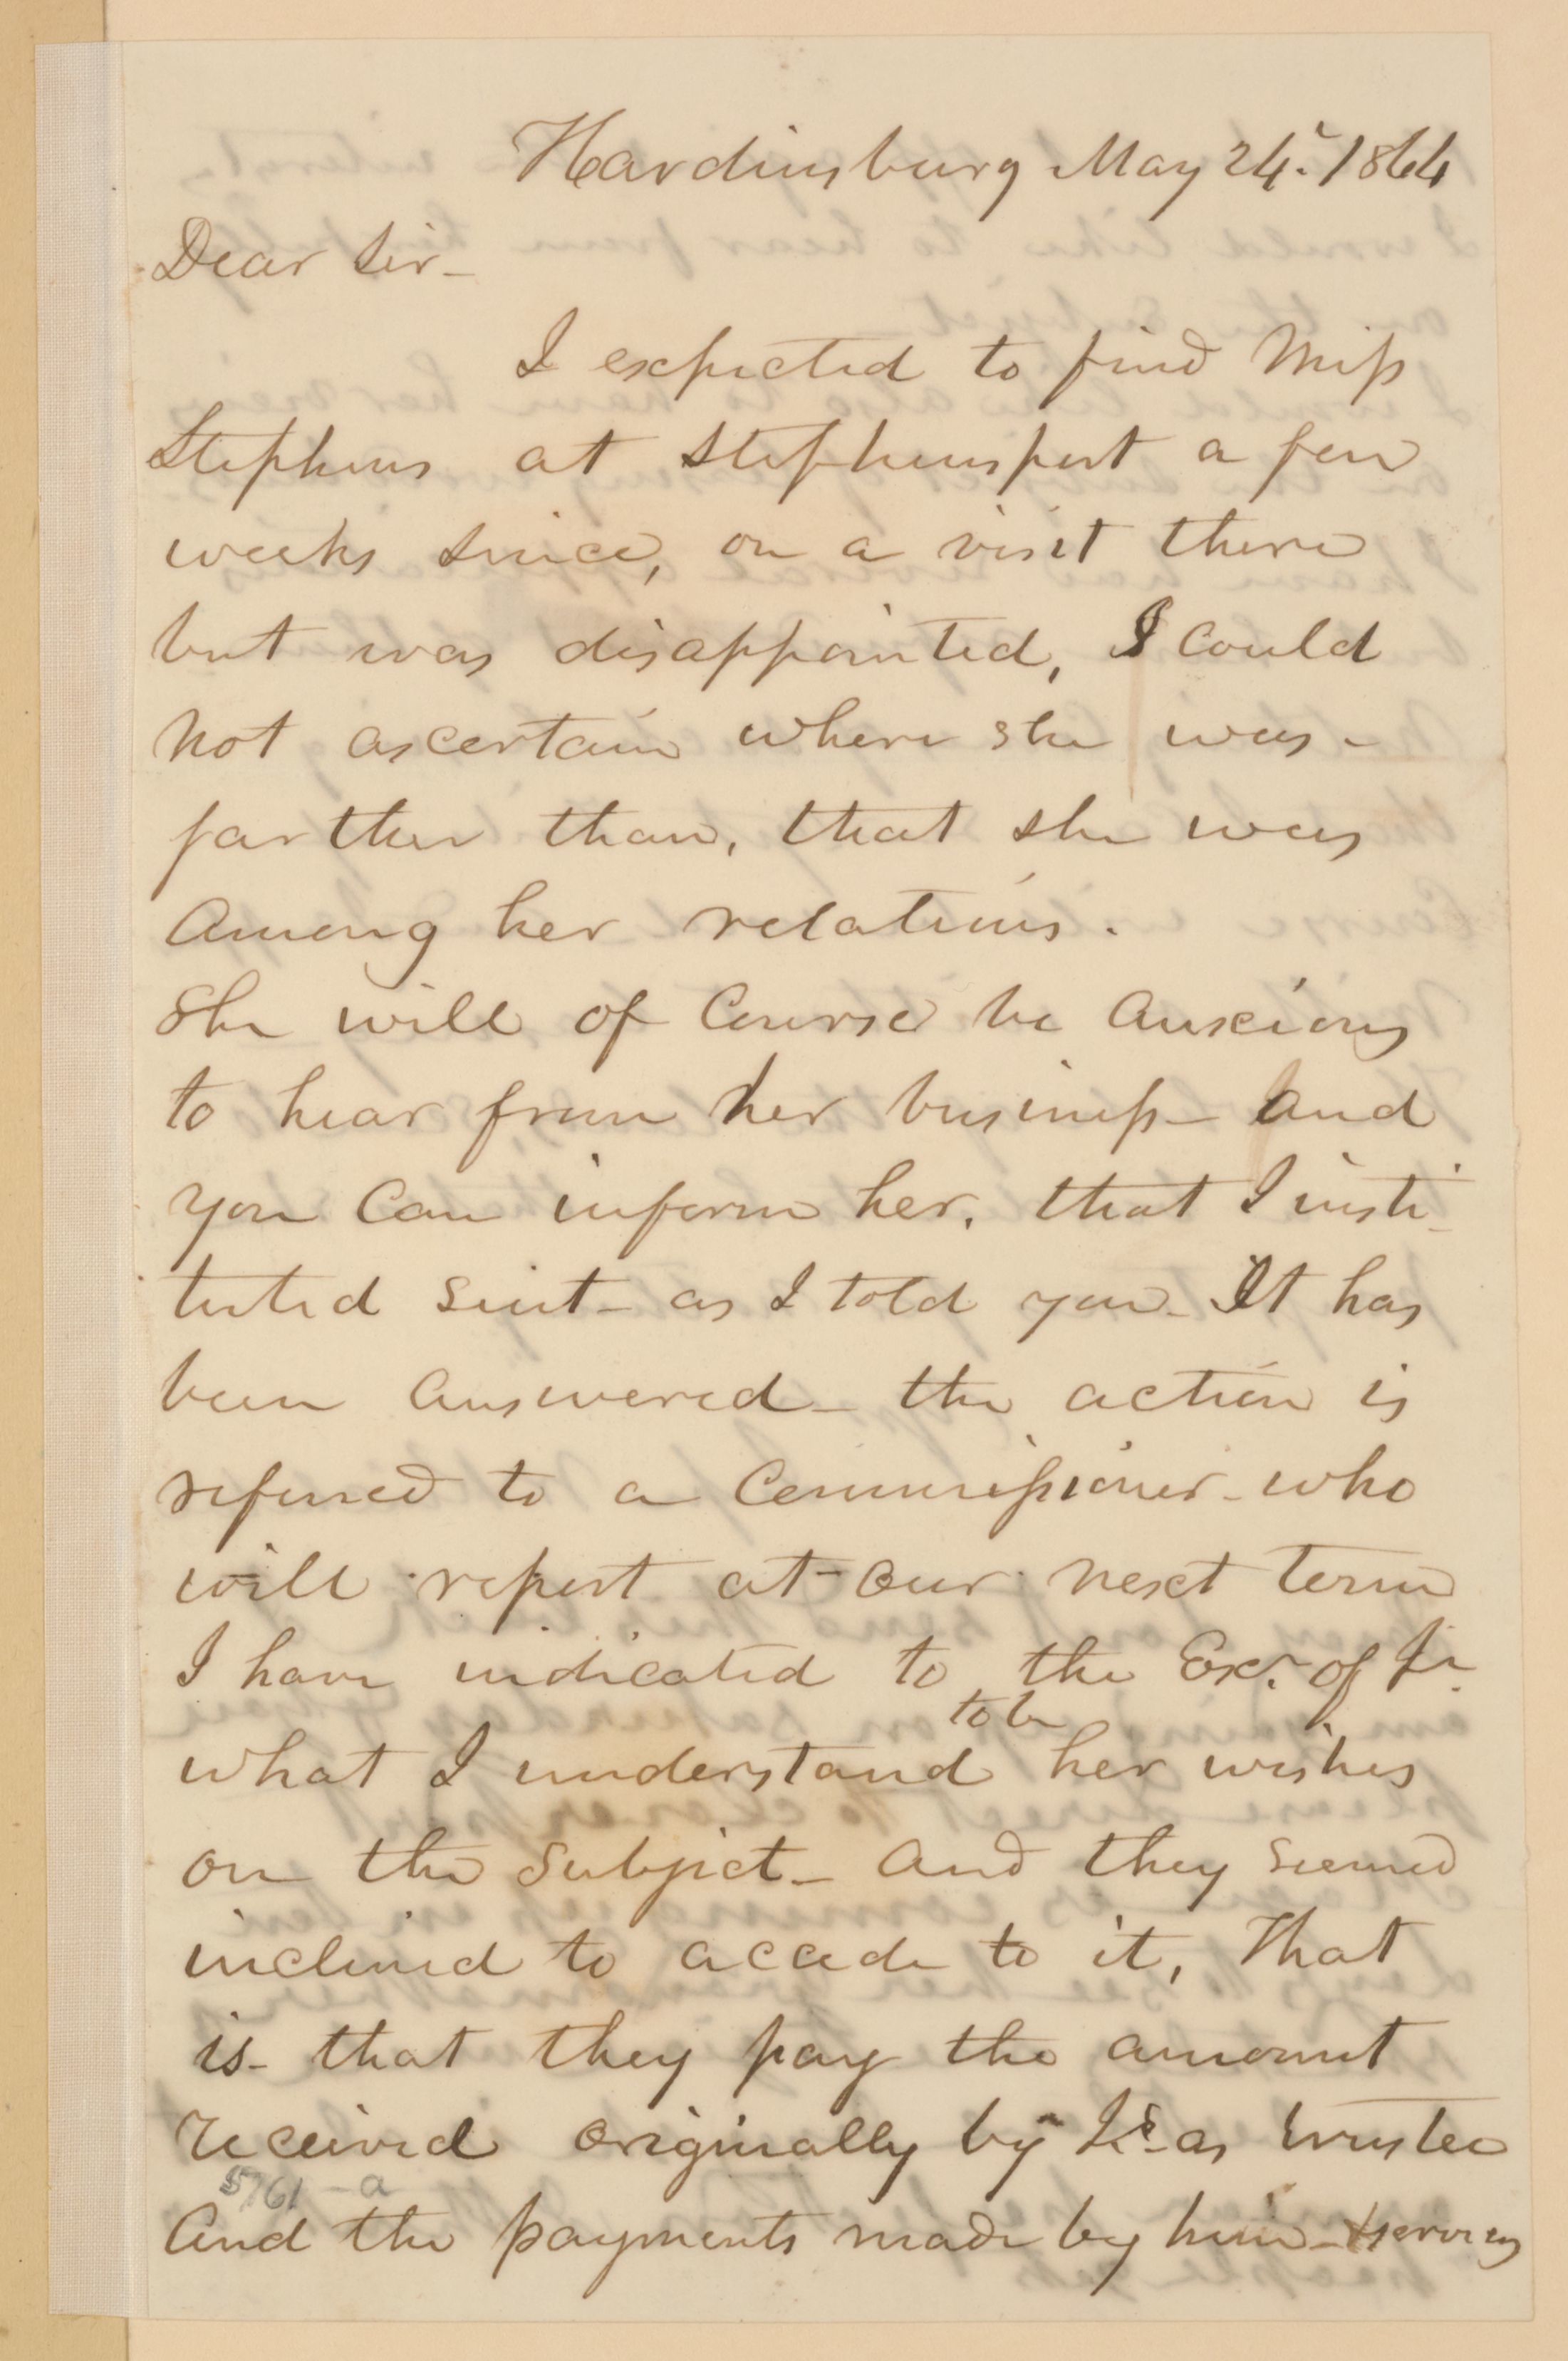 Hardinsburg May 24. 1864
Dear Sir-
I expected to find Miss
Stephens at Stephensport a few
weeks since, on a visit there
but was disappointed, I could
not ascertain where she was-
farther than, that she was
Among her relations.
She will of Course be Anxious
to hear from her business- And
you Can inform her, that I insti-
tuted suit- as I told you- It has
been Answered- the action is
referred to a Commissioner- who
will report at our next term
I have indicated to the Exr. of
what I understand to be her wishes
on the subject- And they seemed
inclined to accede to it, That
is- that they pay the amount
received originally by as trustee
5761-a
And the payments made by him-